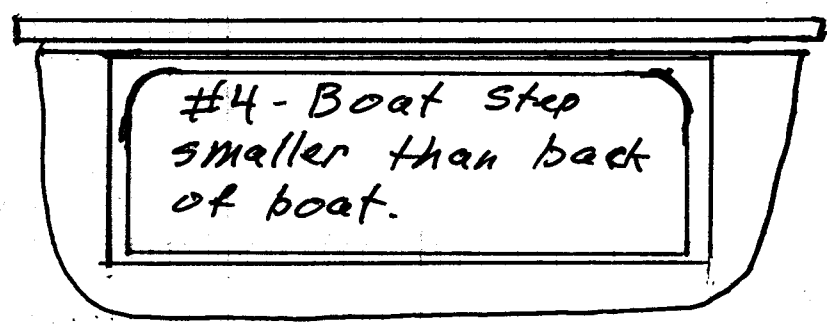 #4 - Boat step
smaller than back
of boat.